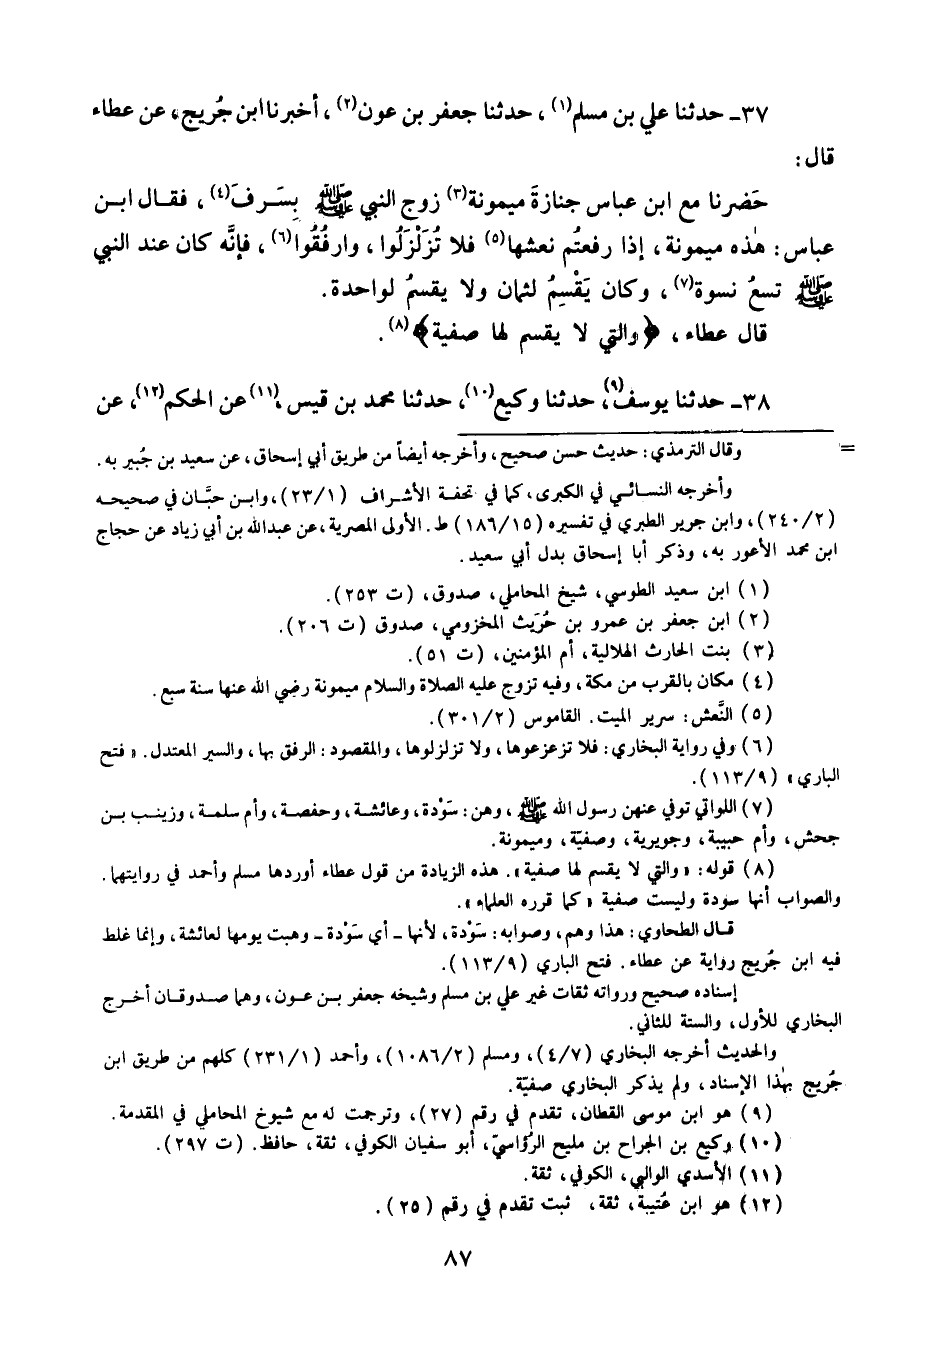 ٣٧ـ حدثنا علي بن مسلم(١)، حدثنا جعفر بن عون(٢)، أخبرنا ابن جُريج، عن عطاء
قال:
حَضرنا مع ابن عباس جنازةَ ميمونة(٣) زوج النبي ﷺ بِسَرفَ(٤)، فقال ابن
عباس: هٰذه ميمونة، إذا رفعتُم نعشها(٥) فلا تُزَلْزَلُوا، وارفُقُوا(٦)، فإنَّه كان عند النبي
ﷺ تسعُ نسوة(٧)، وكان يَقْسِمُ لثمان ولا يقسمُ لواحدة.
قال عطاء، ﴿والتي لا يقسم لها صفية﴾(٨).
٣٨ـ حدثنا يوسف(٩)، حدثنا وكيع(١٠)، حدثنا محمد بن قيس(١١)، عن الحكم(١٢)، عن
= وقال الترمذي: حديث حسن صحيح، وأخرجه أيضاً من طريق أبي إسحاق، عن سعيد بن جُبير به.
وأخرجه النسائي في الكبرى، كما في تحفة الأشراف (٢٣/١)، وابن حبَّان في صحيحه
(٢٤٠/٢)، وابن جرير الطبري في تفسيره (١٨٦/١٥) ط. الأولى المصرية، عن عبدالله بن أبي زياد عن حجاج
ابن محمد الأعور به، وذكر أبا إسحاق بدل أبي سعيد.
(١) ابن سعيد الطوسي، شيخ المحاملي، صدوق، (ت ٢٥٣).
(٢) ابن جعفر بن عمرو بن حُرَيث المخزومي، صدوق (ت ٢٠٦).
(٣) بنت الحارث الهلالية، أم المؤمنين، (ت ٥١).
(٤) مكان بالقرب من مكة، وفيه تزوج عليه الصلاة والسلام ميمونة رضي الله عنها سنة سبع.
(٥) النَّعش: سرير الميت. القاموس (٣٠١/٢).
(٦) وفي رواية البخاري: فلا تزعزعوها، ولا تزلزلوها، والمقصود: الرفق بها، والسير المعتدل. «فتح
الباري» (١١٣/٩).
(٧) اللواتي توفي عنهن رسول الله ﷺ، وهن: سَوْدة، وعائشة، وحفصة، وأم سلمة، وزينب بن
جحش، وأم حبيبة، وجويرية، وصفيّة، وميمونة.
(٨) قوله: «والتي لا يقسم لها صفية». هذه الزيادة من قول عطاء أوردها مسلم وأحمد في روايتهما.
والصواب أنها سودة وليست صفية «كما قرره العلماء».
قال الطحاوي: هذا وهم، وصوابه: سَوْدة، لأنها ـ أي سَوْدة ـ وهبت يومها لعائشة، وإنما غلط
فيه ابن جُريج رواية عن عطاء. فتح الباري (١١٣/٩).
إسناده صحيح ورواته ثقات غير علي بن مسلم وشيخه جعفر بن عون، وهما صدوقان أخرج
البخاري للأول، والستة للثاني.
والحديث أخرجه البخاري (٤/٧)، ومسلم (١٠٨٦/٢)، وأحمد (٢٣١/١) كلهم من طريق ابن
جُريج بهٰذا الإسناد، ولم يذكر البخاري صفيّة.
(٩) هو ابن موسى القطان، تقدم في رقم (٢٧)، وترجمت له مع شيوخ المحاملي في المقدمة.
(١٠) وكيع بن الجراح بن مليح الرُؤاسيّ، أبو سفيان الكوفي، ثقة، حافظ. (ت ٢٩٧).
(١١) الأسدي الوالبي، الكوفي، ثقة.
(١٢) هو ابن عُتيبة، ثقة، ثبت تقدم في رقم (٢٥).
٨٧